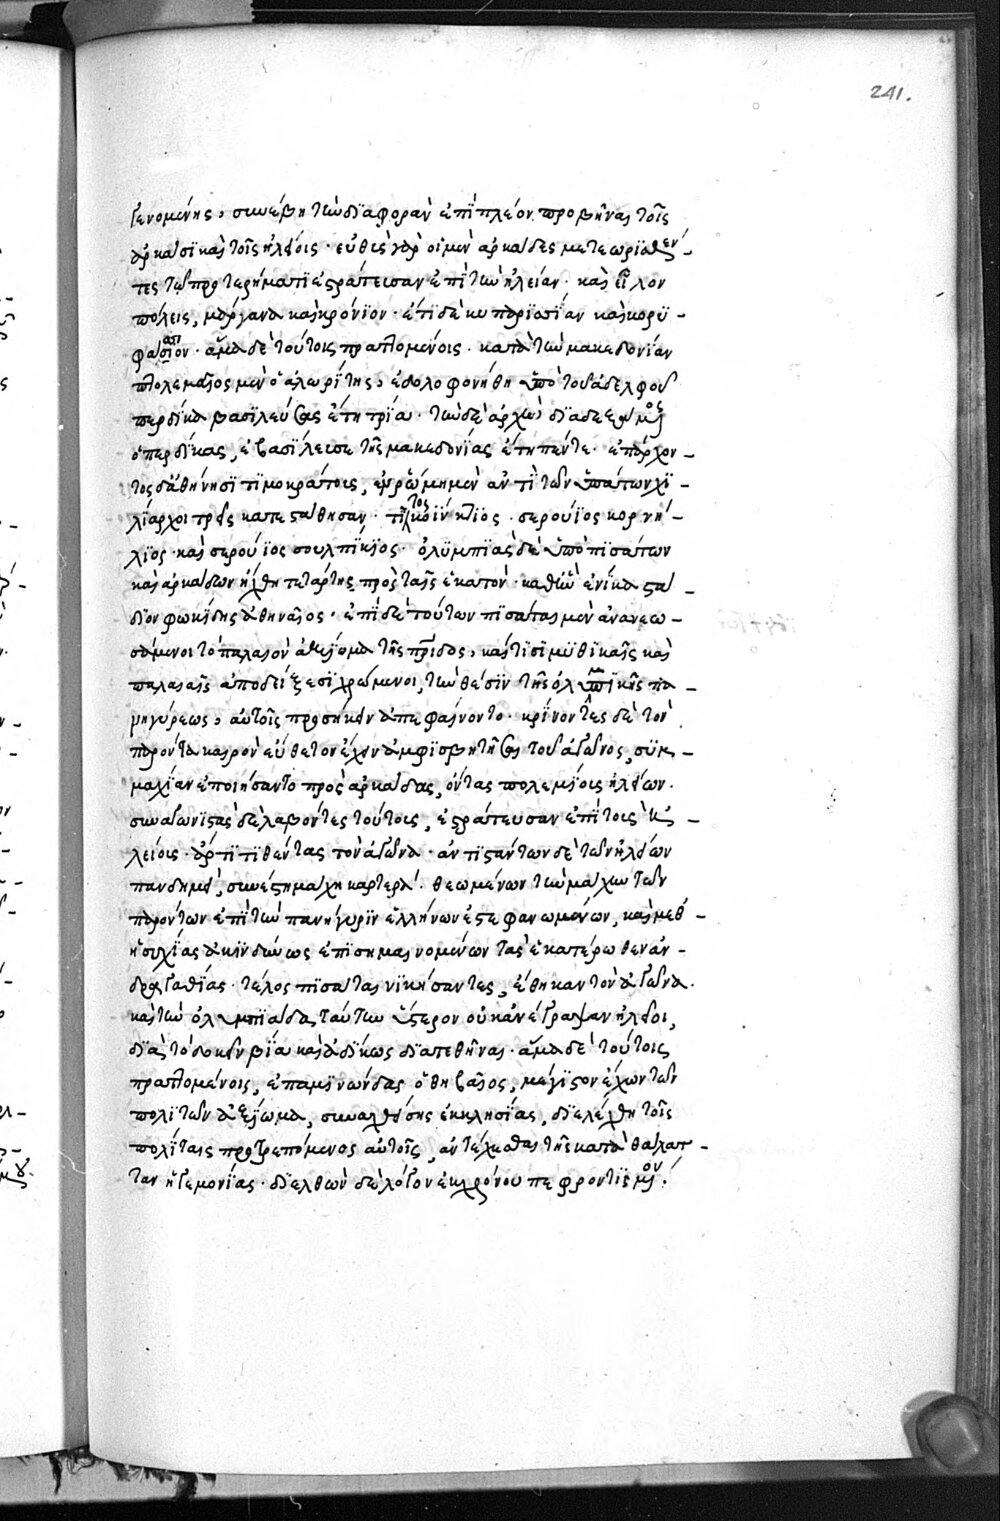 241.
γενομένης, συνέβη τὴν διαφορὰν ἐπὶ πλέον προβῆναι τοῖς
ἀρκάσι καὶ τοῖς ἠλείοις. εὐθὺς γὰρ οἱ μὲν ἀρκάδες μετεωρισθέν-
τες τῷ προτερήματι ἐστράτευσαν ἐπὶ τὴν ἠλείαν. καὶ εἷλον
πόλεις, μάργανα καὶ κρόνιον. ἔτι δὲ κυπαρισίαν καὶ κορυ-
φάσιον. ἅμα δὲ τούτοις πραττομένοις. κατὰ τὴν μακεδονίαν
πτολεμαῖος μὲν ὁ ἀλωρίτης, ἐδολοφονήθη ὑπὸ τοῦ ἀδελφοῦ
περδίκα βασιλεύσας ἔτη τρία. τὴν δὲ ἀρχὴν διαδεξάμενος
ὁ περδίκας, ἐβασίλευσε τῆς μακεδονίας ἔτη πέντε. ἐπ' ἄρχον-
τος δ' ἀθήνησι τιμοκράτους, ἐν ῥώμῃ μὲν ἀντὶ τῶν ὑπάτων χι-
λίαρχοι τρεῖς κατεστάθησαν. τίτος κοΐνκτιος. σερούϊος κορνή-
λιος. καὶ σερούϊος σουλπίκιος. ὀλυμπιὰς δὲ ὑπὸ πισάτων
καὶ ἀρκάδων ἤχθη τετάρτης πρὸς ταῖς ἑκατόν. καθ' ἣν ἐνίκα στά-
διον φωκίδης ἀθηναῖος. ἐπὶ δὲ τούτων πισάται μὲν ἀνανεω-
σάμενοι τὸ παλαιὸν ἀξίωμα τῆς πρίδος, καί τισι μυθικαῖς καὶ
παλαιαῖς ἀποδείξεσι χρώμενοι, τὴν θέσιν τῆς ὀλυμπικῆς πα-
νηγύρεως, αὐτοῖς προσήκειν ἀπεφαίνοντο. κρίνοντες δὲ τὸν
παρόντα καιρὸν εὔθετον ἔχειν ἀμφισβητῆσαι τοῦ ἀγῶνος, συμ-
μαχίαν ἐποιήσαντο πρὸς ἀρκάδας, ὄντας πολεμίους ἠλείων.
συναγωνιστὰς δὲ λαβόντες τούτους, ἐστράτευσαν ἐπὶ τοὺς ἠ-
λείους. ἄρτι τιθέντας τὸν ἀγῶνα. ἀντιστάντων δὲ τῶν ἠλείων
πανδημεί, συνέστη μάχη καρτερά. θεωμένων τὴν μάχην τῶν
παρόντων ἐπὶ τὴν πανήγυριν ἑλλήνων ἐστεφανωμένων, καὶ μεθ'
ἡσυχίας ἀκινδύνως ἐπισημαινομένων τὰς ἑκατέρωθεν ἀν-
δραγαθίας. τέλος πισάται νικήσαντες, ἔθηκαν τὸν ἀγῶνα.
καὶ τὴν ὀλυμπιάδα ταύτην ὕστερον οὐκ ἀνέγραψαν ἠλεῖοι,
διὰ τὸ δοκεῖν βίᾳ καὶ ἀδίκως διατεθῆναι. ἅμα δὲ τούτοις
πραττομένοις, ἐπαμινώνδας ὁ θηβαῖος, μέγιστον ἔχων τῶν
πολιτῶν ἀξίωμα, συναχθείσης ἐκκλησίας, διελέχθη τοῖς
πολίταις προτρεπόμενος αὐτοῖς, ἀντέχεσθαι τῆς κατὰ θάλατ-
ταν ἡγεμονίας. διελθὼν δὲ λόγον ἐκ χρόνου πεφροντισμένον.